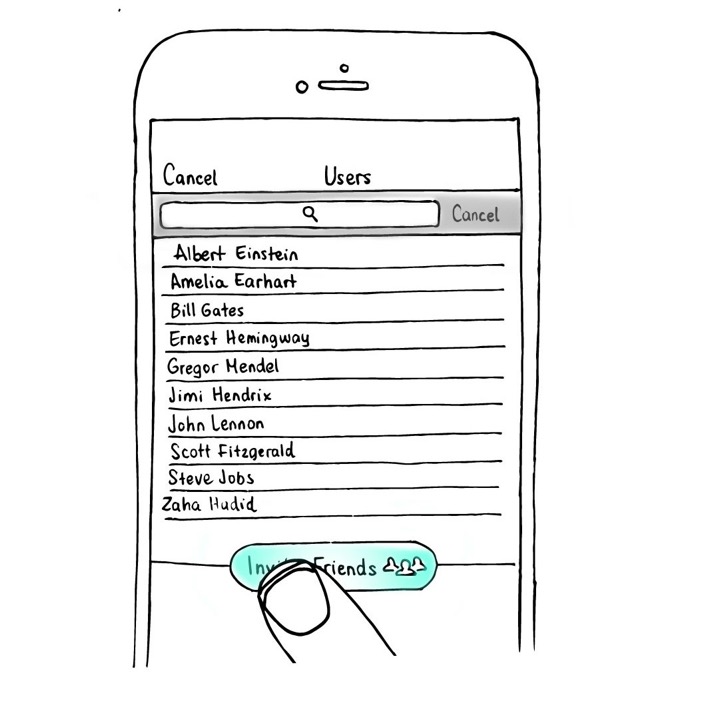 Cancel Users
Cancel
Albert Einstein
Amelia Earhart
Bill Gates
Ernest Hemingway
Gregor Mendel
Jimi Hendrix
John Lennon
Scott Fitzgerald
Steve Jobs
Zaha Hudid
Friends